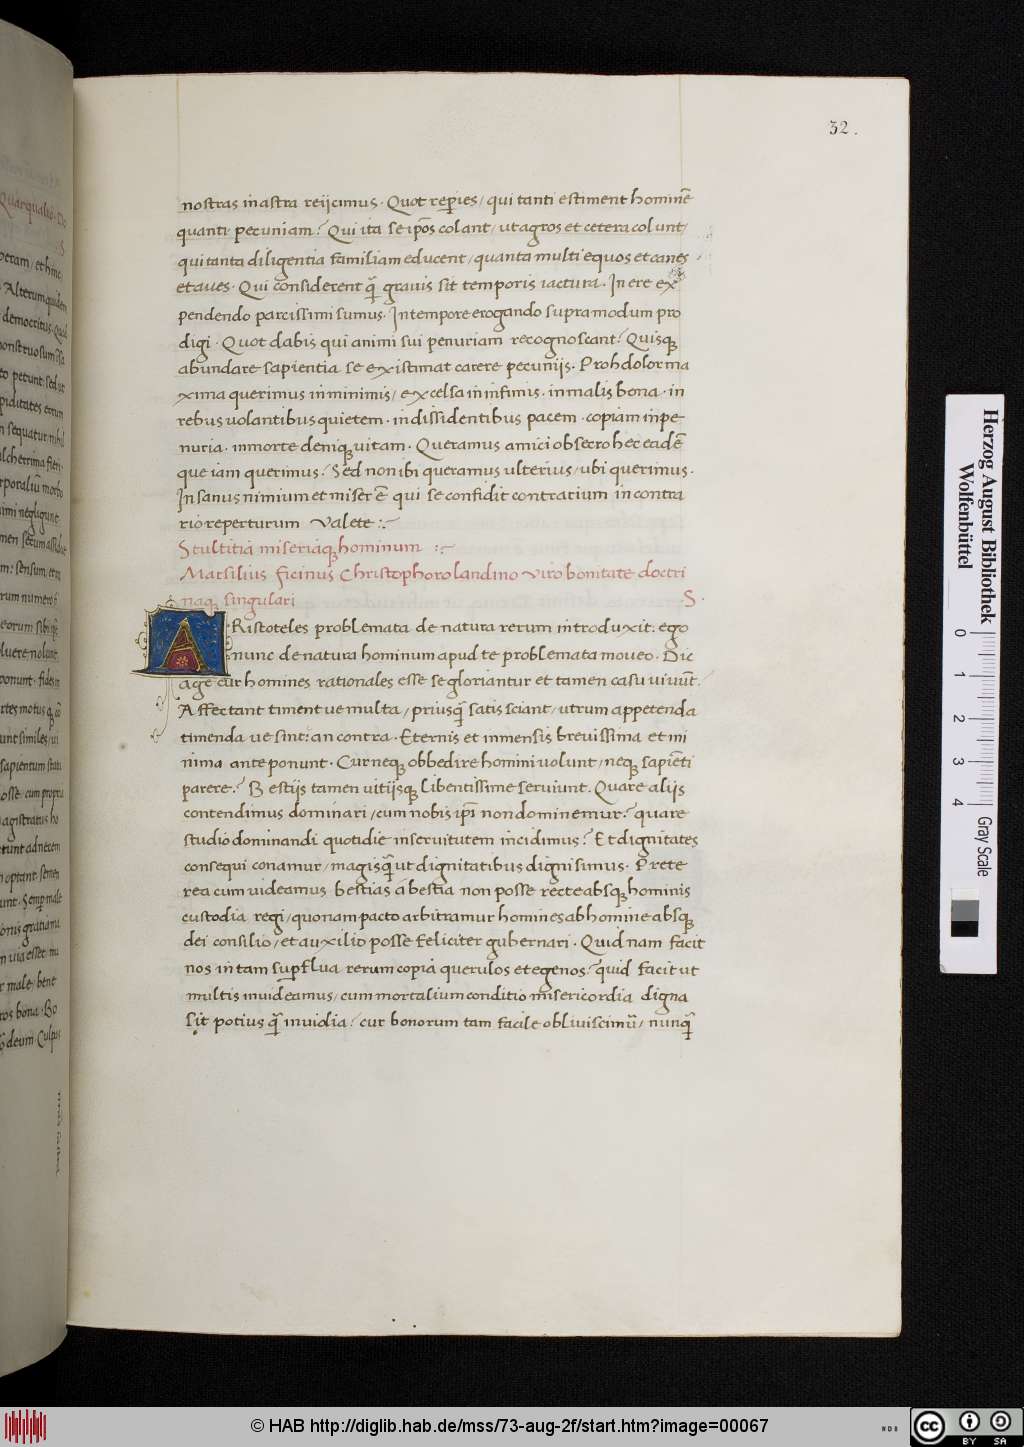 32.
nostras in astra reijcimus. Quot reperies, qui tanti estiment hominē
quanti pecuniam? Qui ita se ip̄os colant, ut agros et cetera colunt,
qui tanta diligentia familiam educent, quanta multi equos et canes
et aues. Qui considerent q̄ grauis sit temporis iactura. In ere ex
pendendo parcissimi sumus. In tempore erogando supra modum pro
digi. Quot dabis qui animi sui penuriam recognoscant? Quisq;
abundare sapientia se existimat carere pecunijs. Proh dolor ma
xima querimus in minimis, excelsa in infimis. in malis bona. in
rebus uolantibus quietem. in dissidentibus pacem. copiam in pe-
nuria. in morte deniq; uitam. Queramus amici obsecro hec eadē
que iam querimus? Sed non ibi queramus ulterius, ubi querimus.
Insanus nimium et miser ē qui se confidit contrarium in contra
rio reperturum Valete:~
Stultitia miseriaq; hominum :~
Marsilius ficinus Christophoro landino viro bonitate doctri
naq; singulari S.
ARistoteles problemata de natura rerum introduxit. ego
nunc de natura hominum apud te problemata moueo. Dic
age cur homines rationales esse se gloriantur et tamen casu uiuūt.
Affectant timent ue multa, priusq̄ satis sciant, utrum appetenda
timenda ue sint: an contra. Eternis et inmensis breuissima et mi
nima anteponunt. Cur neq; obbedire homini uolunt, neq; sapiēti
parere? Bestijs tamen uitijsq; libentissime seruiunt. Quare alijs
contendimus dominari, cum nobis ip̄i non dominemur? quare
studio dominandi quotidie in seruitutem incidimus? Et dignitates
consequi conamur, magisq̄ ut dignitatibus digni simus. Prete
rea cum uideamus bestias à bestia non posse recte absq; hominis
custodia regi, quonam pacto arbitramur homines ab homine absq;
dei consilio, et auxilio posse feliciter gubernari. Quid nam facit
nos in tam supflua rerum copia querulos et egenos? quid facit ut
multis inuideamus, cum mortalium conditio misericordia digna
sit potius q̄ inuidia? cur bonorum tam facile obliuiscimur, nunq̄
Herzog August Bibliothek
Wolfenbüttel
0 1 2 3 4
Gray Scale
© HAB http://diglib.hab.de/mss/73-aug-2f/start.htm?image=00067
WDB
cc BY SA